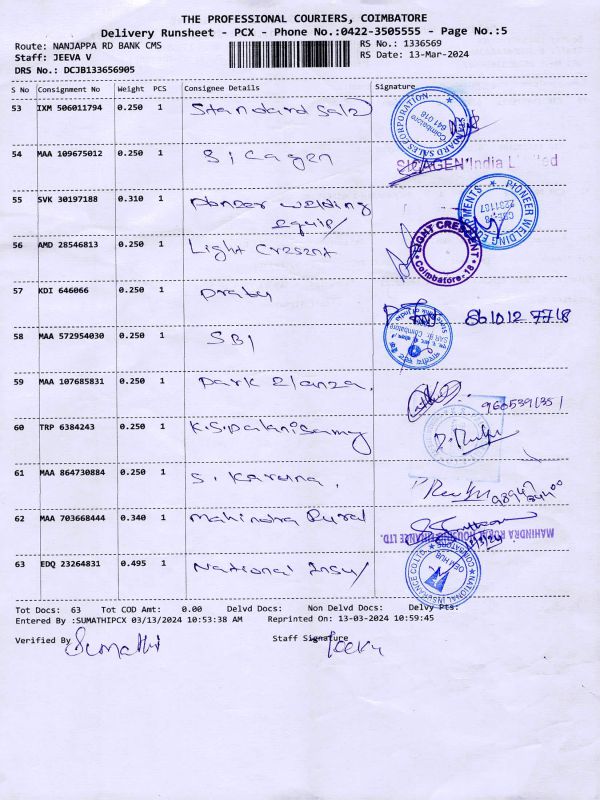 THE PROFESSIONAL COURIERS, COIMBATORE
Delivery Runsheet - PCX - Phone No.:0422-3505555 - Page No.:5
Route: NANJAPPA RD BANK CMS RS No.: 1336569
Staff: JEEVA V RS Date: 13-Mar-2024
DRS No.: DCJB133656905
S No Consignment No Weight PCS Consignee Details Signature
53 IXM 506011794 0.250 1 Standard Sale
STANDARD SALES CORPORATION
Coimbatore
641 018
54 MAA 109675012 0.250 1 Sicagen
SICAGEN India Limited
55 SVK 30197188 0.310 1 Pioneer welding
equip
PIONEER WELDING EQUIPMENTS
CBE-18
2231187
56 AMD 28546813 0.250 1 Light Crescent
LIGHT CRESCENT
Coimbatore-18
57 KDI 646066 0.250 1 Prabu
58 MAA 572954030 0.250 1 SBI
59 MAA 107685831 0.250 1 Park Elanza.
60 TRP 6384243 0.250 1 K.S.Palanisamy
61 MAA 864730884 0.250 1 S. Karuna.
62 MAA 703668444 0.340 1 Mahindra Rural
MAHINDRA RURAL HOUSING FINANCE LTD.
63 EDQ 23264831 0.495 1 National Insu
NATIONAL INSURANCE CO LTD.
COIMBATORE
Tot Docs: 63 Tot COD Amt: 0.00 Delvd Docs: Non Delvd Docs: Delvy Pts:
Entered By :SUMATHIPCX 03/13/2024 10:53:38 AM Reprinted On: 13-03-2024 10:59:45
Verified By Sumathi Staff Signature Jeeva